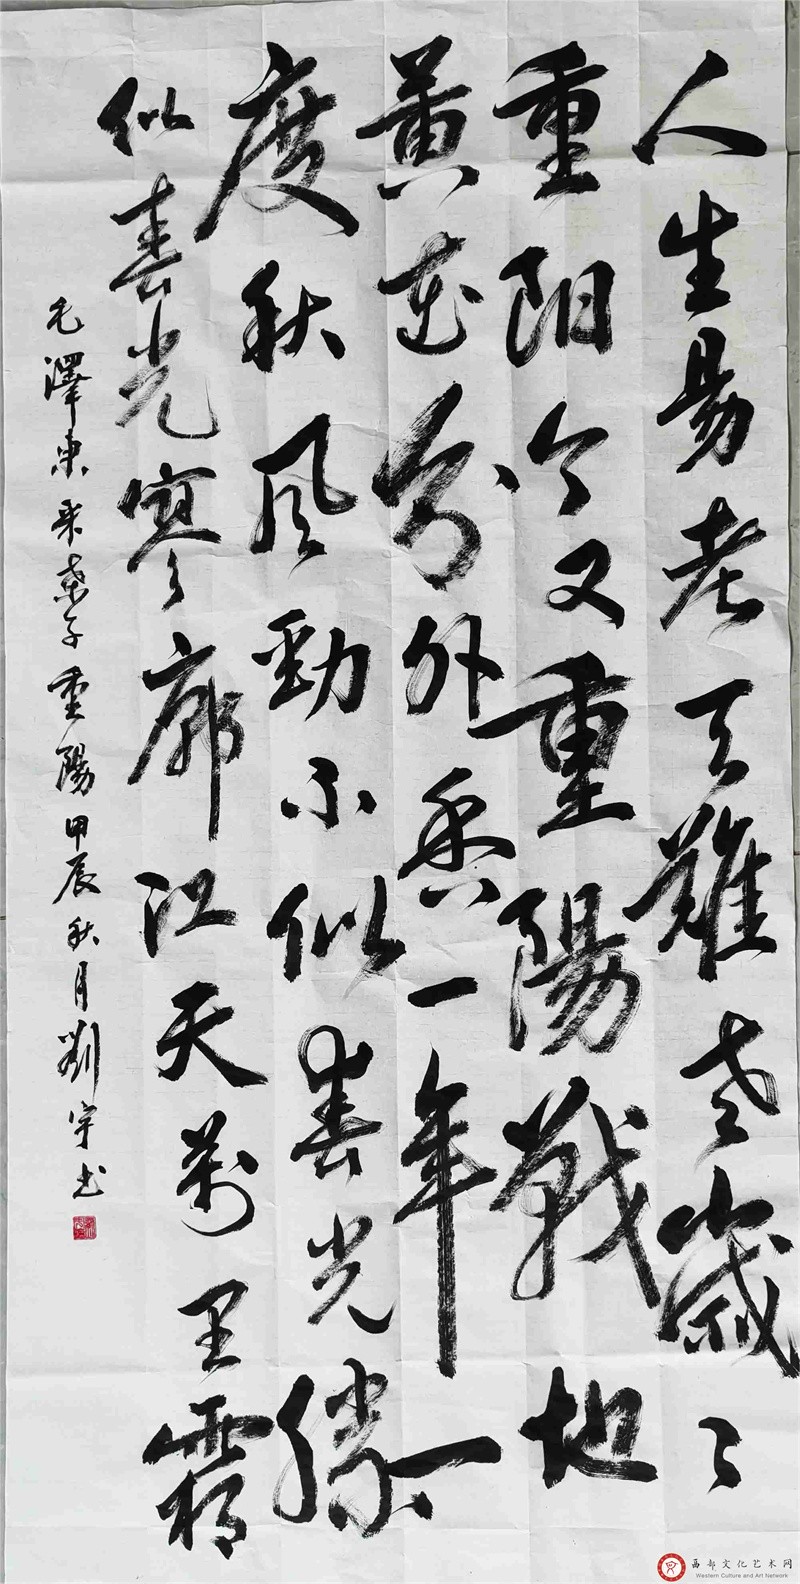 人生易老天難老歲々
重阳今又重陽戰地
黄花分外香一年一
度秋风勁不似春光勝
似春光寥廓江天萬里霜
毛澤东采桑子重陽甲辰秋月劉宇书
西部文化艺术网
Western Culture and Art Network